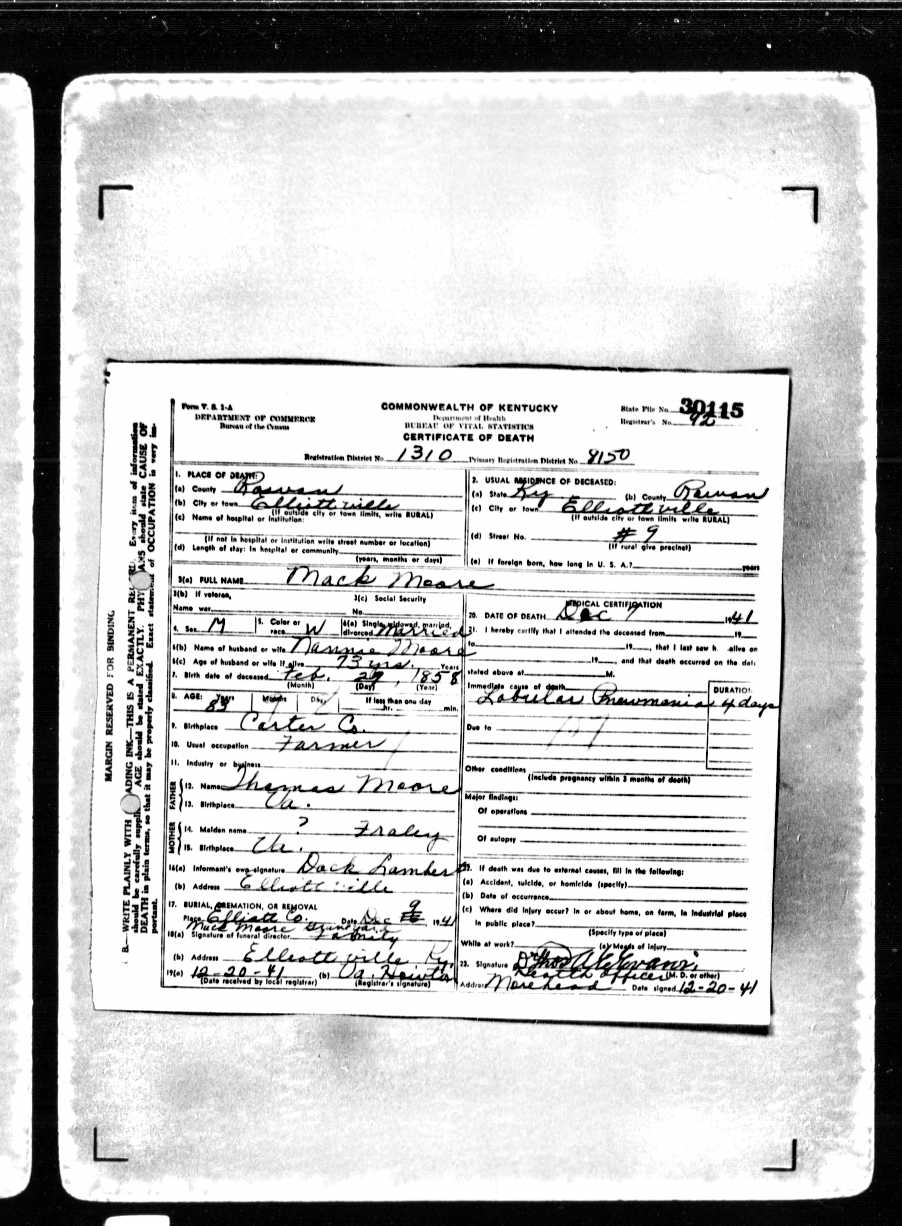 Form V. S. 1-A
DEPARTMENT OF COMMERCE
Bureau of the Census
COMMONWEALTH OF KENTUCKY
Department of Health
BUREAU OF VITAL STATISTICS
CERTIFICATE OF DEATH
State File No. 30115
Registrar's No. 92
Registration District No. 1310 Primary Registration District No. 8150
1. PLACE OF DEATH:
(a) County Rowan
(b) City or town Elliottville
(If outside city or town limits, write RURAL)
(c) Name of hospital or institution:
(If not in hospital or institution write street number or location)
(d) Length of stay: In hospital or community
(years, months or days)
2. USUAL RESIDENCE OF DECEASED:
(a) State Ky (b) County Rowan
(c) City or town Elliottville
(If outside city or town limits write RURAL)
(d) Street No. # 9
(If rural give precinct)
(e) If foreign born, how long in U. S. A.? years
3(a) FULL NAME Mack Moore
3(b) If veteran,
Name war
3(c) Social Security
No.
4. Sex M 5. Color or race W 6(a) Single, widowed, married, divorced Married
6(b) Name of husband or wife Nannie Moore
6(c) Age of husband or wife if alive 73 yrs. Years
7. Birth date of deceased Feb. 29, 1858
(Month) (Day) (Year)
8. AGE: Years Months Days If less than one day
83 hr. min.
9. Birthplace Carter Co.
10. Usual occupation Farmer
11. Industry or business
FATHER
12. Name Thomas Moore
13. Birthplace Va.
MOTHER
14. Maiden name ? Fraley
15. Birthplace Va.
16(a) Informant's own signature Dock Lambert
(b) Address Elliottville
17. BURIAL, CREMATION, OR REMOVAL
Place Elliott Co. Date Dec 9 1941
Mack Moore Graveyard
18(a) Signature of funeral director Family
(b) Address Elliottville Ky.
19(a) 12-20-41 (b)
(Date received by local registrar) (Registrar's signature)
MEDICAL CERTIFICATION
20. DATE OF DEATH Dec 7 1941
21. I hereby certify that I attended the deceased from 19
to 19, that I last saw h alive on
19, and that death occurred on the date
stated above at M.
Immediate cause of death
Lobular Pneumonia
DURATION
4 days
Due to
Other conditions
(Include pregnancy within 3 months of death)
Major findings:
Of operations
Of autopsy
22. If death was due to external causes, fill in the following:
(a) Accident, suicide, or homicide (specify)
(b) Date of occurrence
(c) Where did injury occur? In or about home, on farm, in industrial place
in public place?
(Specify type of place)
While at work? (e) Means of injury
23. Signature Dr Thos A E Evans
Health Officer (M. D. or other)
Address Morehead Date signed 12-20-41
MARGIN RESERVED FOR BINDING